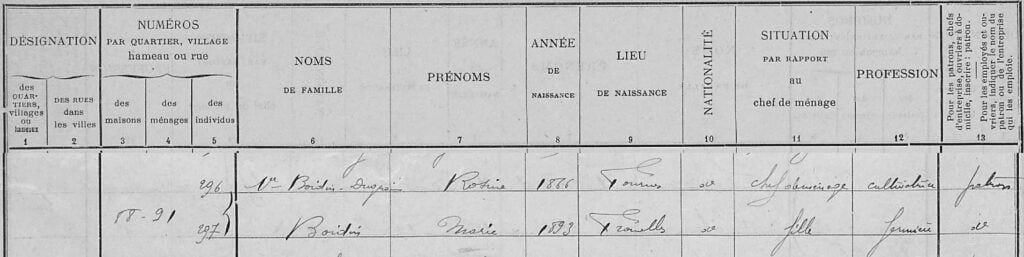 DÉSIGNATION
des QUAR-TIERS, villages ou hameaux
DES RUES dans les villes
NUMÉROS
PAR QUARTIER, VILLAGE
hameau ou rue
des maisons
des ménages
des individus
NOMS
DE FAMILLE
PRÉNOMS
ANNÉE
DE
NAISSANCE
LIEU
DE NAISSANCE
NATIONALITÉ
SITUATION
PAR RAPPORT
au
chef de ménage
PROFESSION
Pour les patrons, chefs
d'entreprise, ouvriers à do-
micile, inscrire : patron.
Pour les employés et ou-
vriers, indiquer le nom du
patron ou de l'entreprise
qui les emploie.
1 2 3 4 5 6 7 8 9 10 11 12 13
296 Vve Boidin- Rosine 1866 Tournus do chef de ménage cultivatrice patron
88 - 91
297 Boidin Marie 1893 do fille fermière do